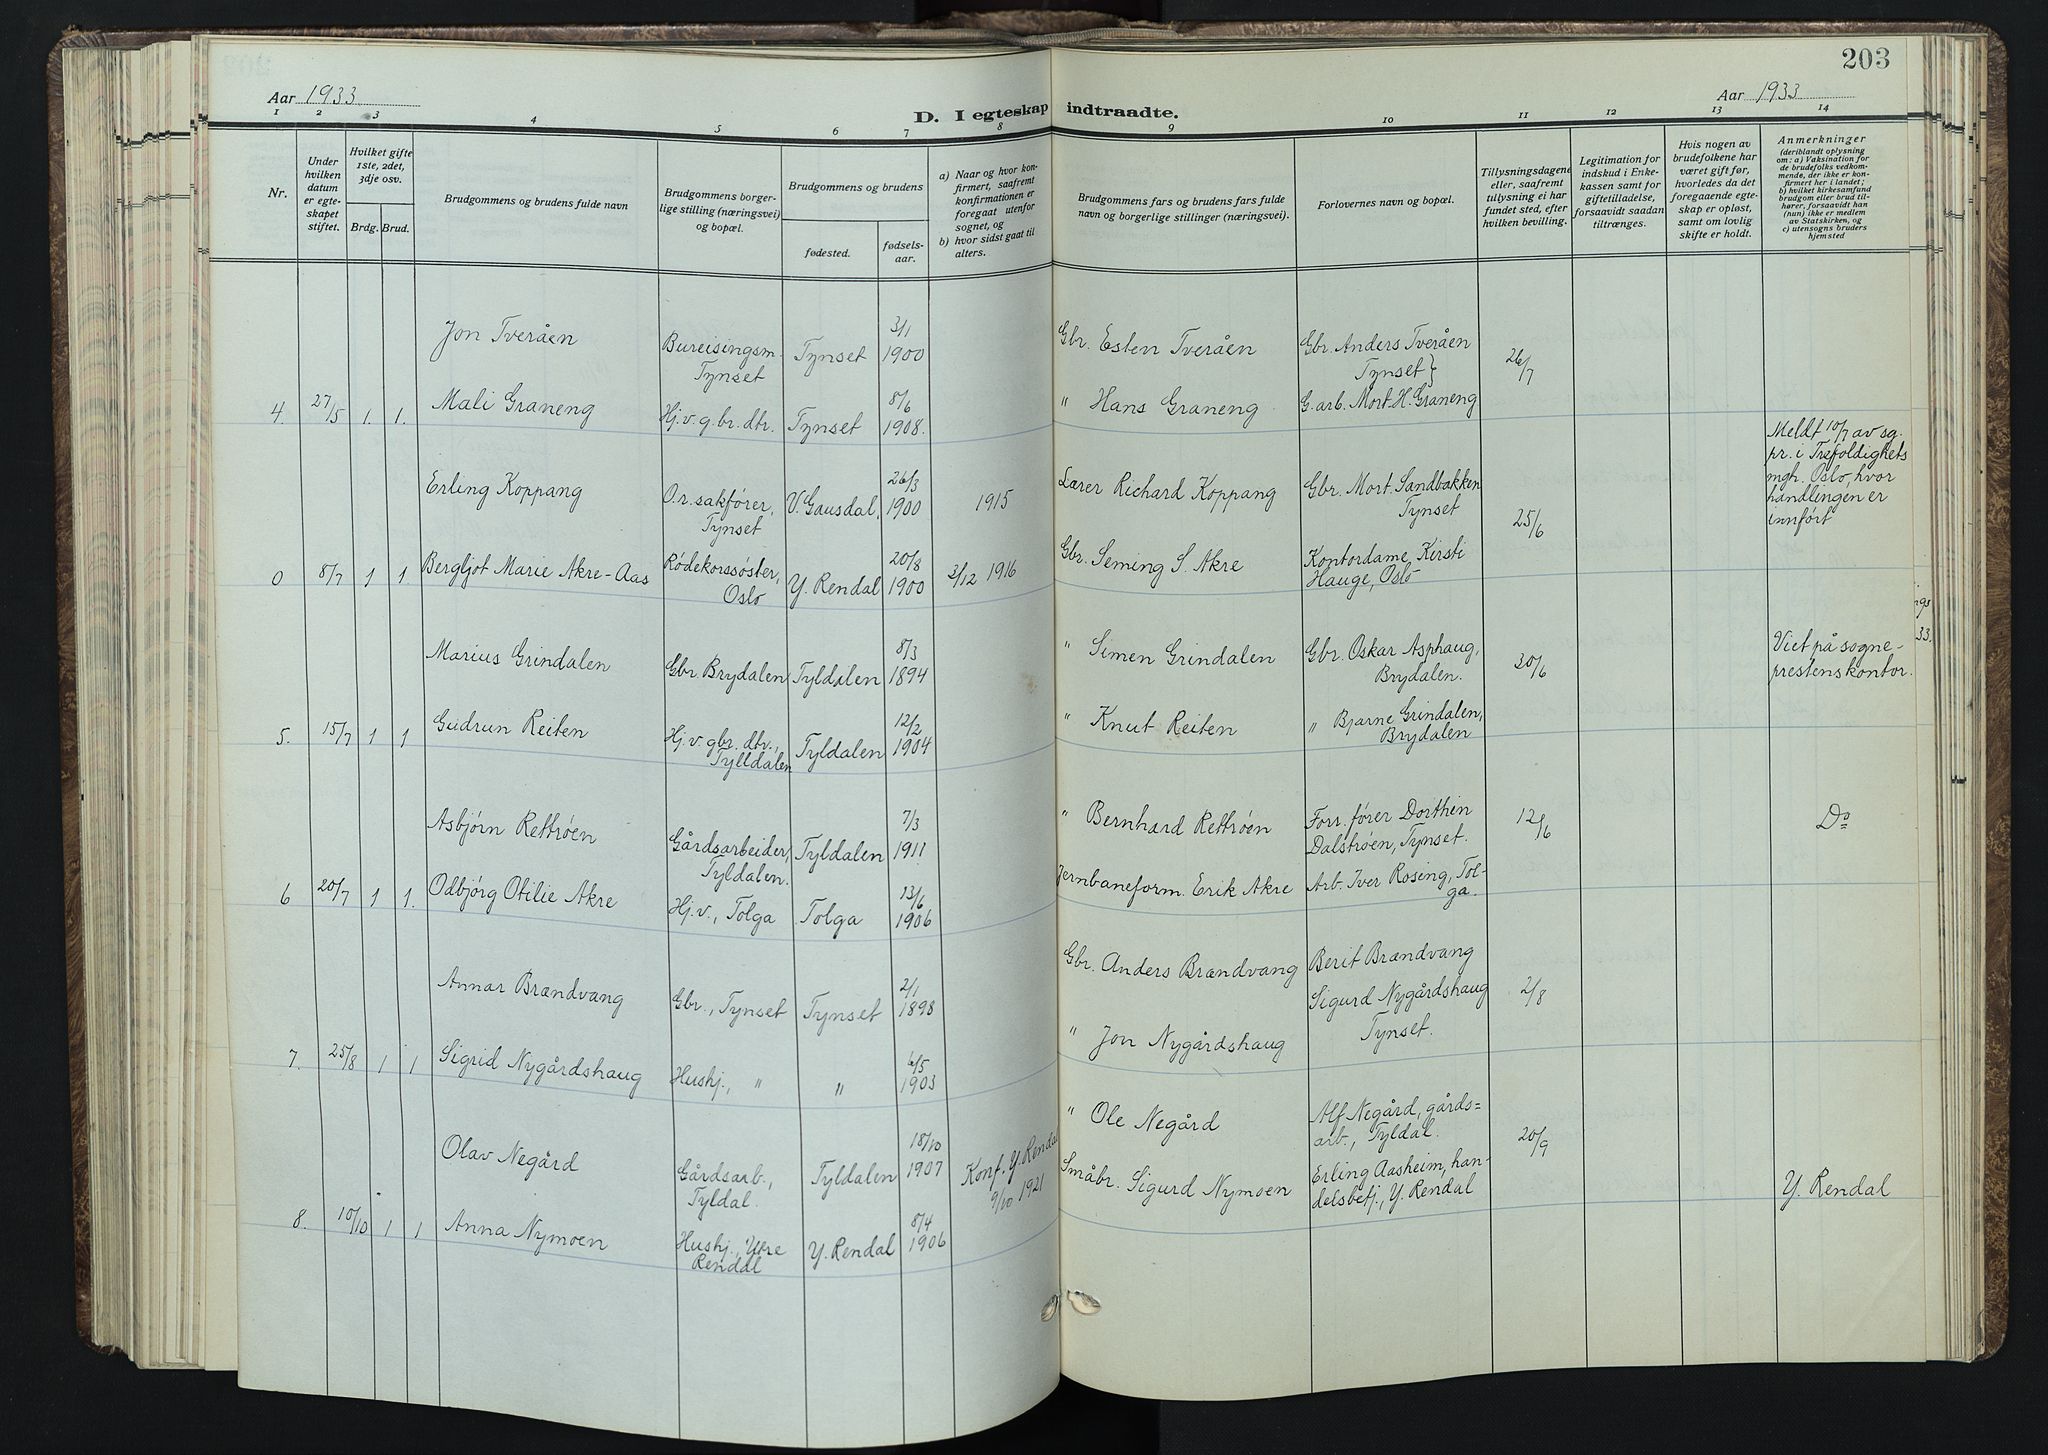 203
Aar 1933
D. I egteskap indtraadte.
Aar 1933
1 2 3 4 5 6 7 8 9 10 11 12 13 14
Nr.
Under
hvilken
datum
er egte-
skapet
stiftet.
Hvilket gifte
1ste, 2det,
3dje osv.
Brdg. Brud.
Brudgommens og brudens fulde navn
Brudgommens borger-
lige stilling (næringsvei)
og bopæl.
Brudgommens og brudens
fødested.
fødsels-
aar.
a) Naar og hvor kon-
firmert, saafremt
konfirmationen er
foregaat utenfor
sognet, og
b) hvor sidst gaat til
alters.
Brudgommens fars og brudens fars fulde
navn og borgerlige stillinger (næringsvei).
Forlovernes navn og bopæl.
Tillysningsdagene
eller, saafremt
tillysning ei har
fundet sted, efter
hvilken bevilling.
Legitimation for
indskud i Enke-
kassen samt for
giftetilladelse,
forsaavidt saadan
tiltrænges.
Hvis nogen av
brudefolkene har
været gift før,
hvorledes da det
foregaaende egte-
skap er opløst,
samt om lovlig
skifte er holdt.
Anmerkninger
(deriblandt oplysning
om: a) Vaksination for
de brudefolks vedkom-
mende, der ikke er kon-
firmert her i landet;
b) hvilket kirkesamfund
brudgom eller brud til-
hører, forsaavidt han
(hun) ikke er medlem
av Statskirken, og
c) utensogns bruders
hjemsted
Jon Tveråen
Bureisingsm.
Tynset
Tynset
3/1
1900
Gbr. Esten Tveråen
Gbr. Anders Tveråen
Tynset}
26/7
4. 27/5 1. 1.
Mali Graneng
Hj.v. g.br. dtr.
Tynset
8/6
1908.
" Hans Graneng
G.arb. Mort. H. Graneng
Erling Koppang
O.r. sakfører,
Tynset
V. Gausdal,
26/3
1900
1915
Lærer Richard Koppang
Gbr. Mort. Sandbakken
Tynset
25/6
Meldt 10/7 av sg.
pr. i Trefoldighets
mgh. Oslo, hvor
handlingen er
innført
0 8/7 1 1.
Bergljot Marie Akre-Aas
Rødekorssøster,
Oslo
Y. Rendal
20/8
1900
3/12 1916
Gbr. Seming S. Akre
Kontordame Kirsti
Hauge, Oslo
Marius Grindalen
Gbr Brydalen
Tyldalen
8/3
1894
" Simen Grindalen
Gbr. Oskar Asphaug,
Brydalen.
30/6
Viet på sogne-
prestens kontor.
33.
5. 15/7 1 1
Gudrun Reiten
Hj.v. gbr. dtr.,
Tylldalen
Tyldalen
12/2
1904
" Knut Reiten
" Bjarne Grindalen,
Brydalen
Asbjørn Rettrøen
Gårdsarbeider,
Tyldalen.
Tyldalen
7/3
1911
" Bernhard Rettrøen
Forr.fører Dorthin
Dalstrøen, Tynset.
12/6
Do
6 20/7 1 1.
Odbjørg Otilie Akre
Hj.v., Tolga
Tolga
13/6
1906
Jernbaneform. Erik Akre
Arb. Iver Rosing, Tol-
ga.
Annar Brandvang
Gbr., Tynset
Tynset
2/1
1898
Gbr. Anders Brandvang
Berit Brandvang
Sigurd Nygårdshaug
Tynset.
2/8
7. 25/8 1 1
Sigrid Nygårdshaug
Hushj., "
"
6/5
1903
" Jon Nygårdshaug
Olav Negård
Gårdsarb.,
Tyldal.
Tyldalen
18/10
1907
Konf. Y. Rendal
9/10 1921
" Ole Negård
Alf Negård, gårds=
arb., Tyldal.
20/9
8. 10/10 1 1
Anna Nymoen
Hushj., Ytre
Rendal
Y. Rendal
8/4
1906
Småbr. Sigurd Nymoen
Erling Aasheim, han-
delsbetj., Y. Rendal
Y. Rendal